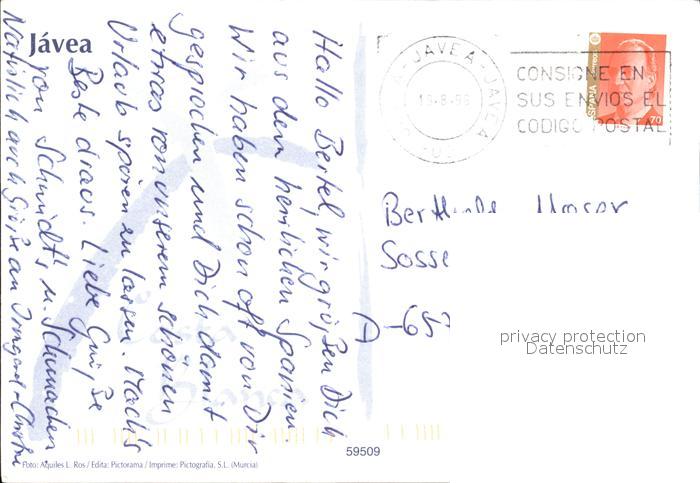 Jávea
Hallo Bertel, wir grüßen Dich
aus dem herrlichen Spanien
Wir haben schon oft von Dir
gesprochen und Dich damit
etwas von unserem schönen
Urlaub spüren zu lassen. Mach's
Beste draus. Liebe Grüße
von Schmidt's u. Schumacher.
Natürlich auch Grüße an Irmgard-Christine
JAVEA-JAVEA
19-8-96
CONSIGNE EN
SUS ENVIOS EL
CODIGO POSTAL
ESPAÑA correos
70
Sosse
A-65
privacy protection
Datenschutz
59509
Foto: Aquiles L. Ros / Edita: Pictorama / Imprime: Pictografía, S.L. (Murcia)
Costa
Blanca